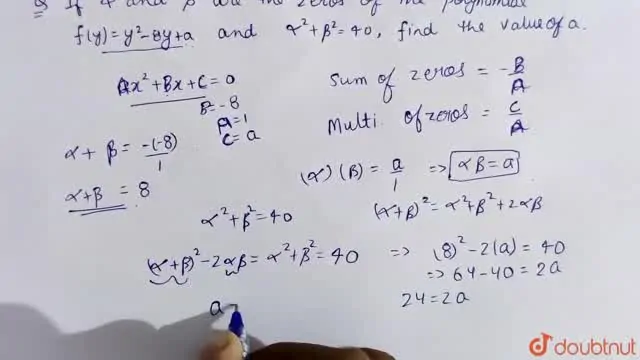 Q If α and β are the zeros of the polynomial
f(y)=y²-8y+a and α²+β²=40, find the value of a.
Ax²+Bx+C=0
B=-8
A=1
C=a
Sum of zeros = -B/A
Multi. of zeros = C/A
α+β = -(-8)/1
α+β = 8
(α)(β) = a/1 ⇒ αβ=a
α²+β²=40
(α+β)²=α²+β²+2αβ
(α+β)²-2αβ=α²+β²=40 ⇒ (8)²-2(a)=40
⇒ 64-40=2a
24=2a
a
doubtnut